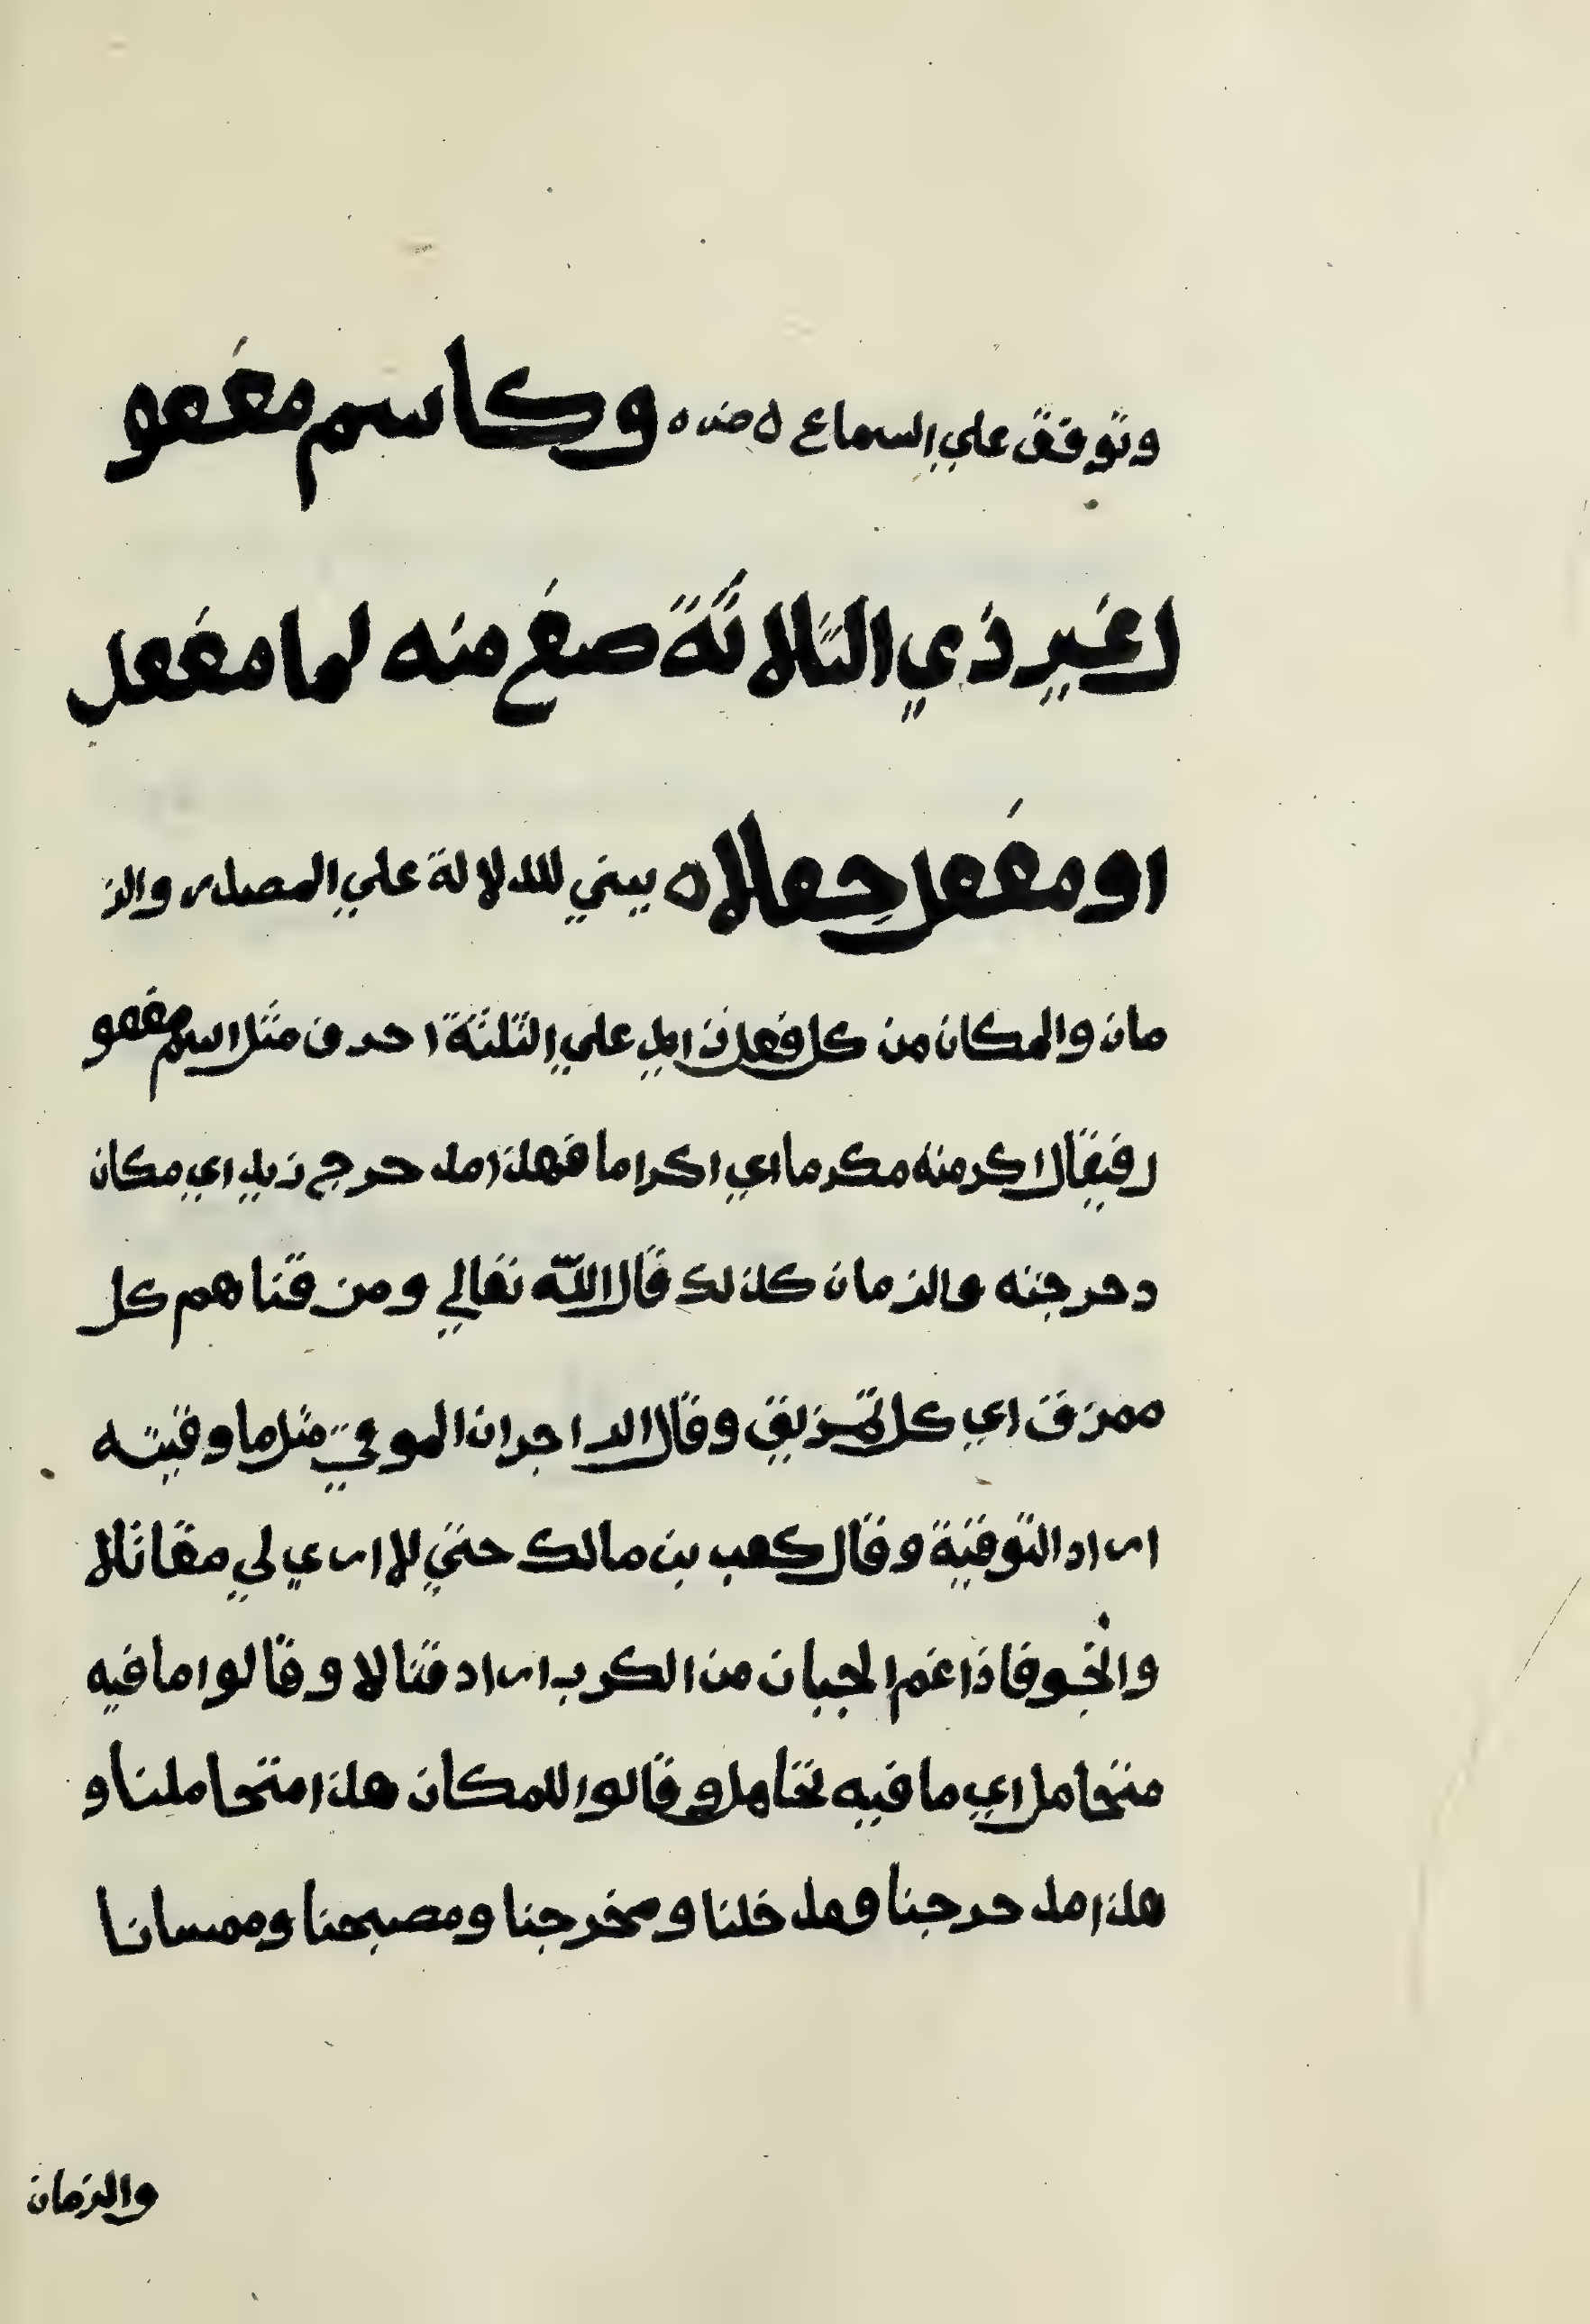 وتوقف علي السماع ه صـ ه وكاسم مفعو
ل غير ذي الثلاثة صغ منه لما مفعل
او مفعل جعلا ه يبني للدلالة علي المصدر والز
مان والمكان من كل فعل زايد علي الثلثة احرف مثل اسم مفعو
ل فيقال اكرمته مكرما اي اكراما فهذا مدحرج زيد اي مكان
دحرجته والزمان كذلك قال الله تعالي ومزقناهم كل
ممزق اي كل تمزيق وقال الراجز ان الموقي مثل ما وقيت
اراد التوقية وقال كعب بن مالك حتي لا اري لي مقاتلا
وانجو فاذا غم الجبان من الكرب اراد قتالا وقالوا ما فيه
متحامل اي ما فيه تحامل وقالوا للمكان هذا متحاملنا و
هذا مدحرجنا ومدخلنا ومخرجنا ومصبحنا وممسانا
والزمان